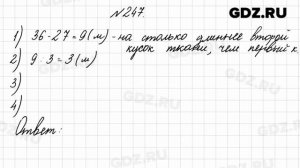 GDZ.RU
№247.
1) 36-27=9(м)-на столько длиннее второй
кусок ткани, чем первый к
2) 9:3=3(м)
3)
4)
Ответ:
GDZ.RU